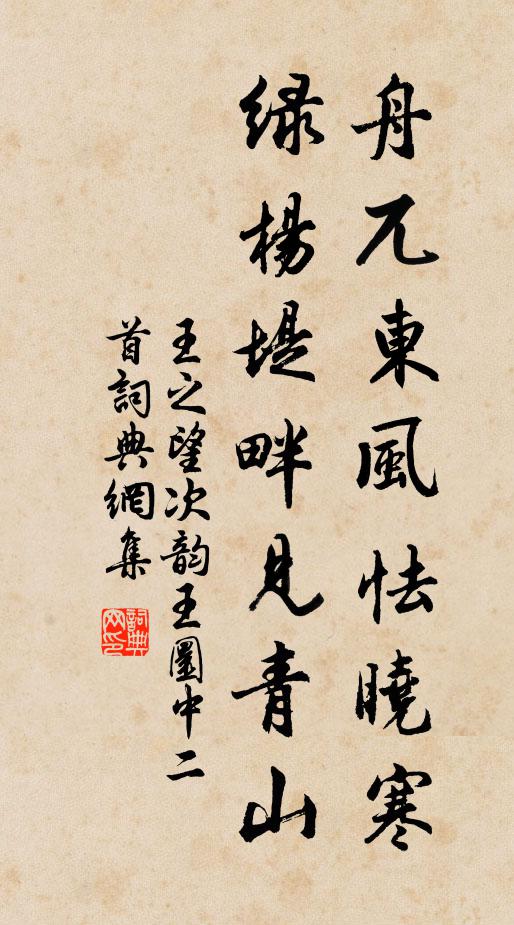 舟兀東風怯曉寒
綠楊堤畔見青山
王之望次韵王圃中二
首詞典網集
詞典網印